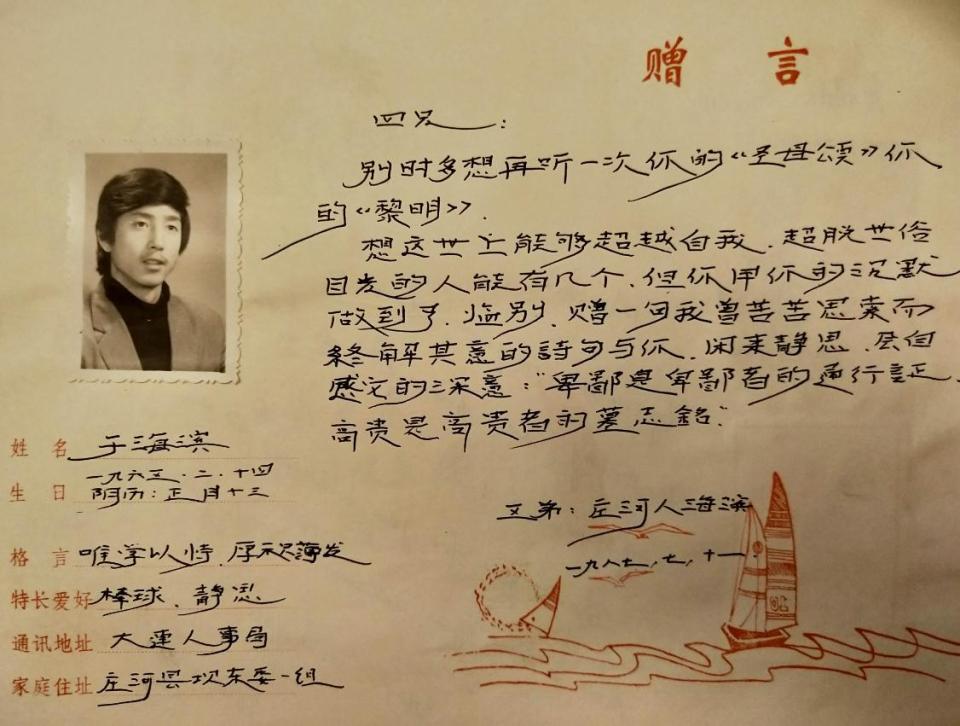 赠 言
四兄：
别时多想再听一次你的《圣母颂》你
的《黎明》.
想这世上能够超越自我、超脱世俗
目光的人能有几个、但你用你的沉默
做到了、临别、赠一句我曾苦苦思索而
终解其意的詩句与你、闲来静思、
感它的深意："卑鄙是卑鄙者的通行証、
高贵是高贵者的墓志銘"
姓 名 于海滨
生 日 一九六五.二.十四
阴历：正月十三
格 言 唯学以恃、厚积薄发
特长爱好 棒球、静思
通讯地址 大連人事局
家庭住址 庄河县坎东委一组
文弟：庄河人海滨
一九八七,七,十一